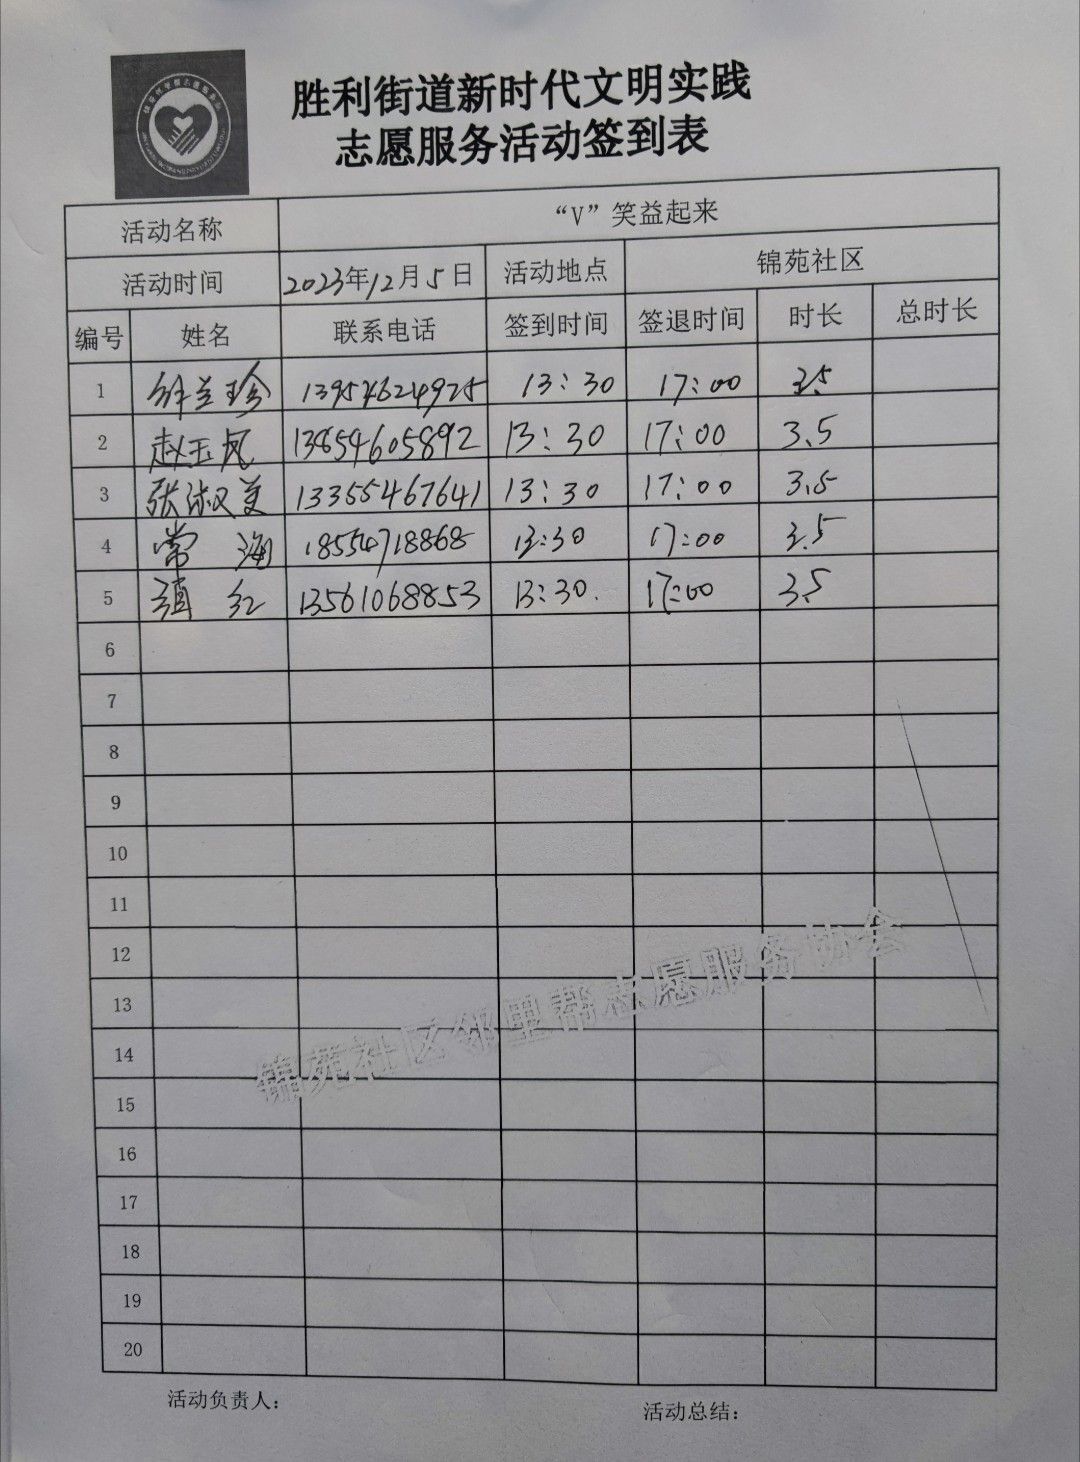 胜利街道新时代文明实践
志愿服务活动签到表
活动名称 “V”笑益起来
活动时间 2023年12月5日 活动地点 锦苑社区
编号 姓名 联系电话 签到时间 签退时间 时长 总时长
1 徐兰珍 13954624925 13:30 17:00 3.5
2 赵玉凤 13854605892 13:30 17:00 3.5
3 张淑美 13355467641 13:30 17:00 3.5
4 常海 18554718868 13:30 17:00 3.5
5 红 13561068853 13:30. 17:00 3.5
6
7
8
9
10
11
12
13
14
15
16
17
18
19
20
锦苑社区邻里帮志愿服务协会
活动负责人:
活动总结: